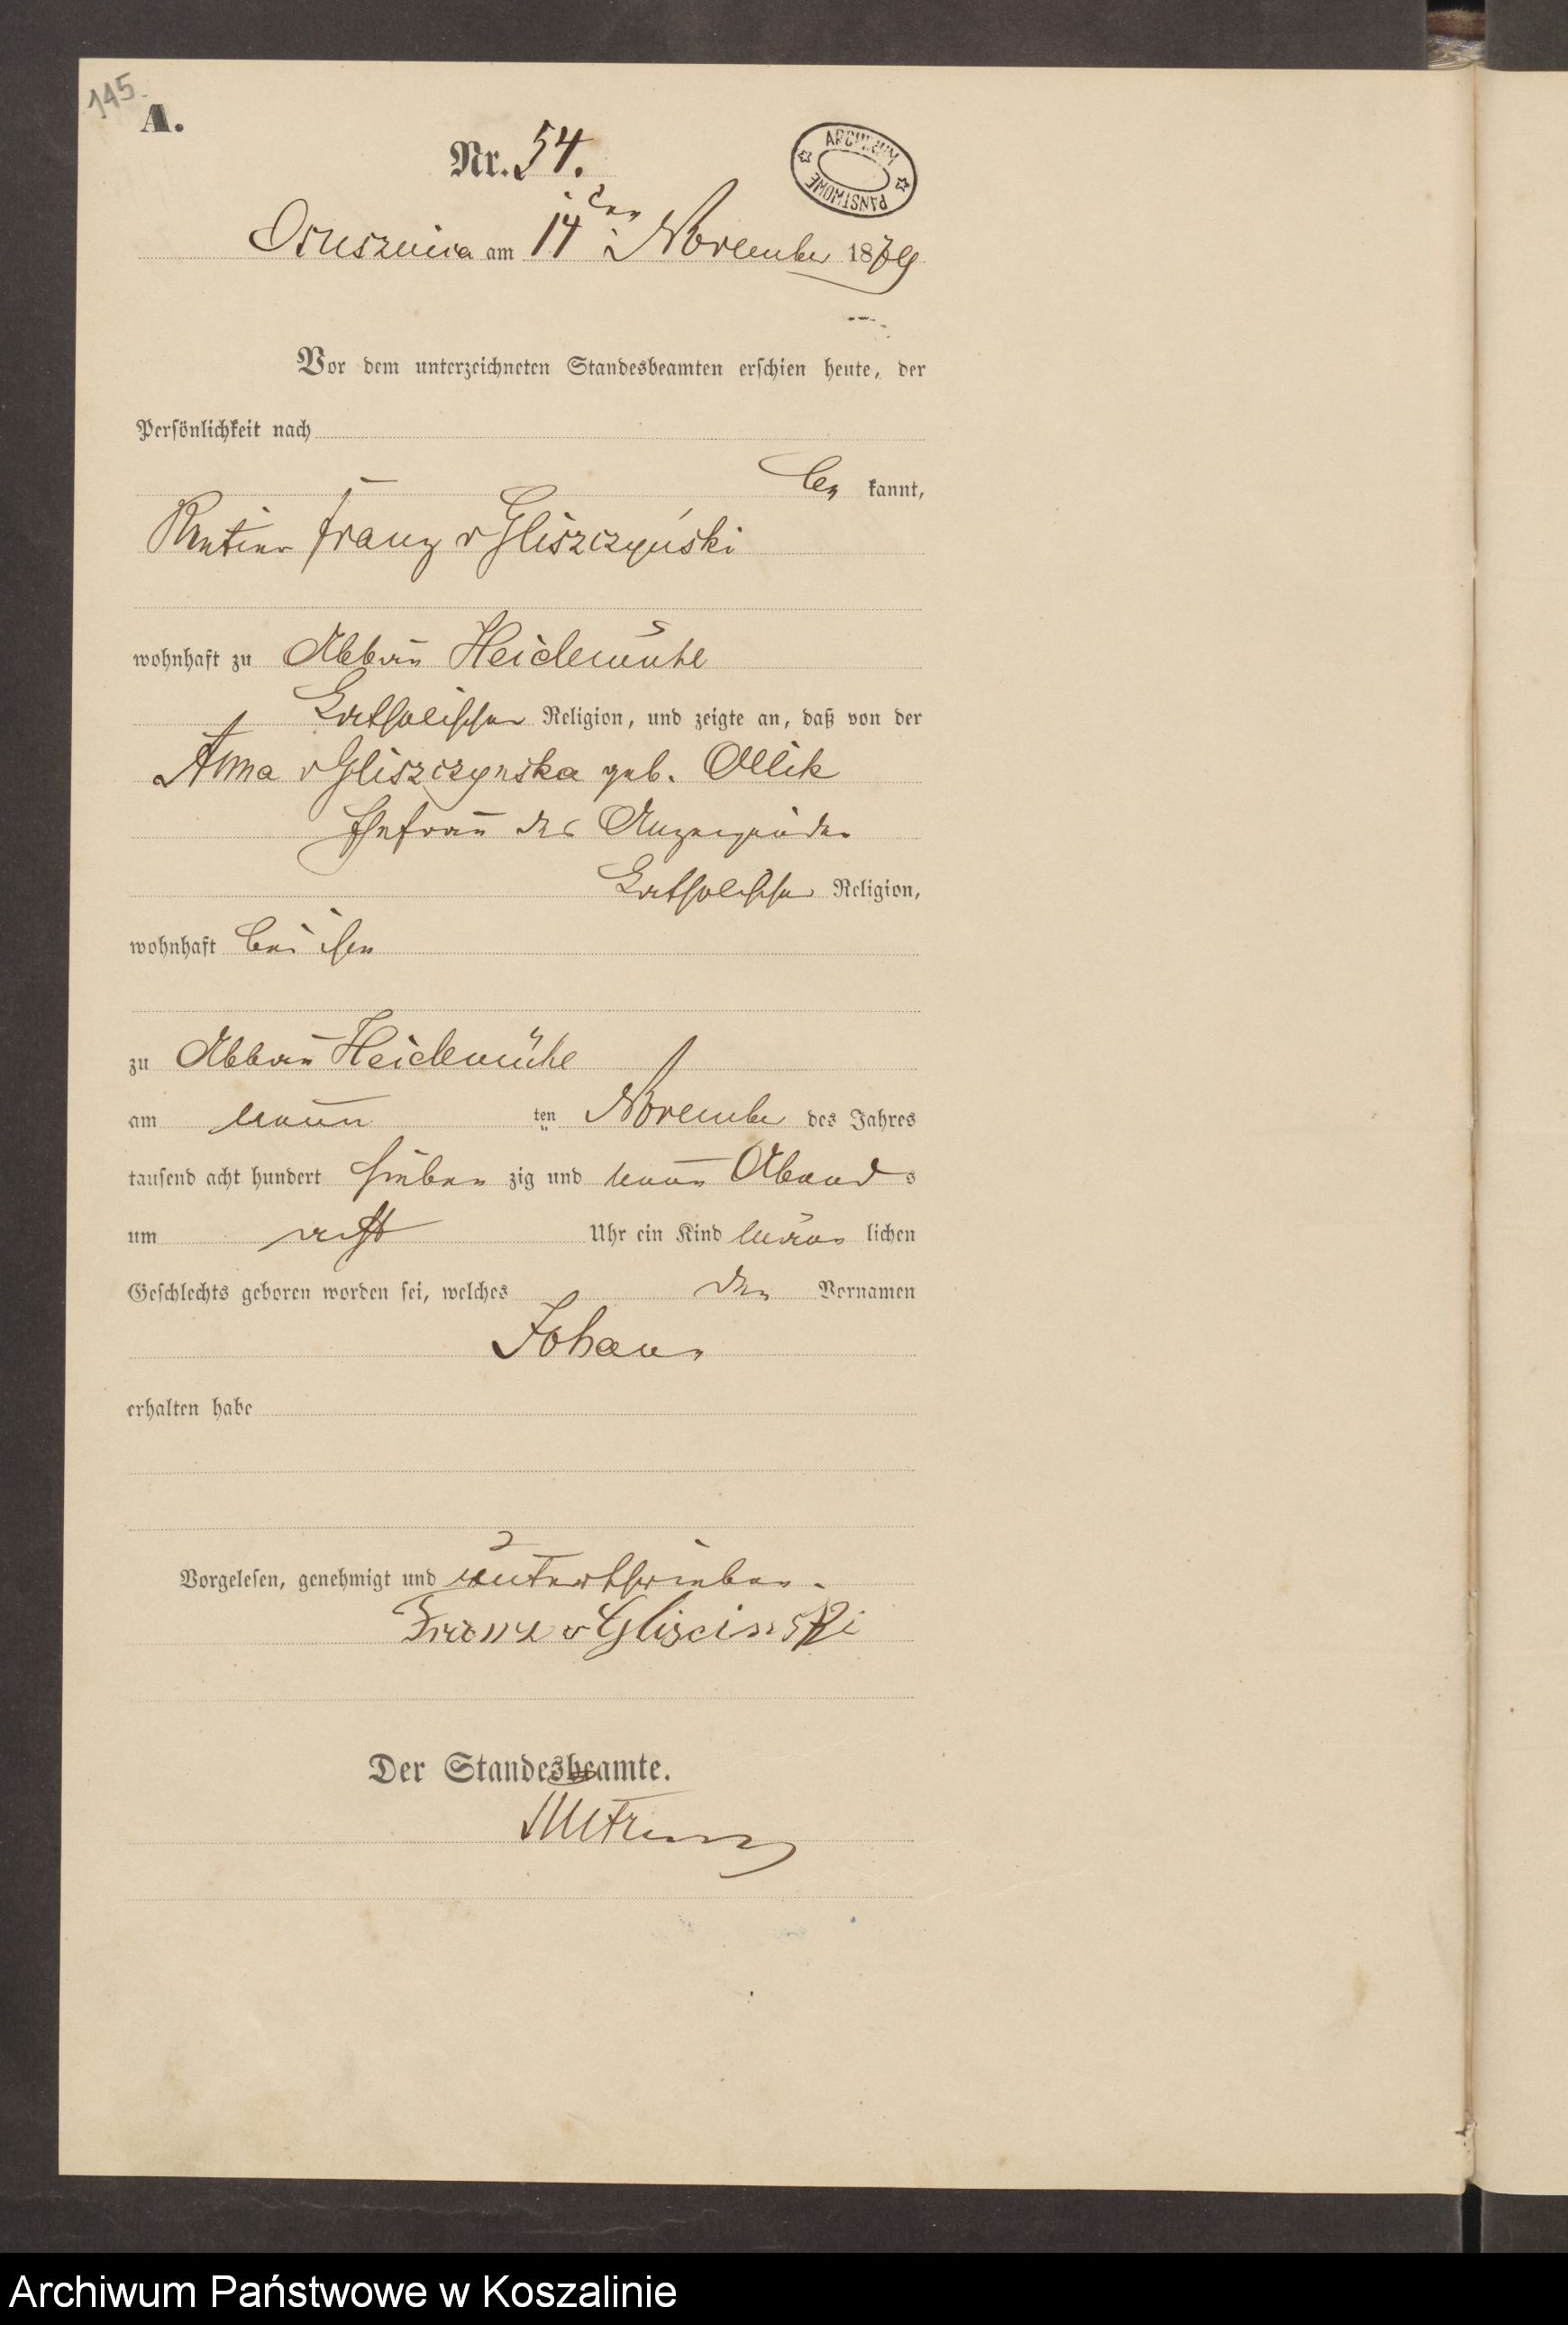 145.
A.
Nr. 54.
ARCHIWUM PAŃSTWOWE
Osusznica am 14ten November 1879
Vor dem unterzeichneten Standesbeamten erschien heute, der
Persönlichkeit nach
be kannt,
Rentier Franz v Gliszczyński
wohnhaft zu Abbau Heidemühl
katholischer Religion, und zeigte an, daß von der
Anna v Gliszczynska geb. Ollik
Ehefrau des Anzeigenden
katholischer Religion,
wohnhaft bei ihm
zu Abbau Heidemühl
am neun ten November des Jahres
tausend acht hundert sieben zig und neun Abend s
um acht Uhr ein Kind männ lichen
Geschlechts geboren worden sei, welches den Vornamen
Johann
erhalten habe
Vorgelesen, genehmigt und unterschrieben.
Franz v Gliscinski
Der Standesbeamte.
Archiwum Państwowe w Koszalinie